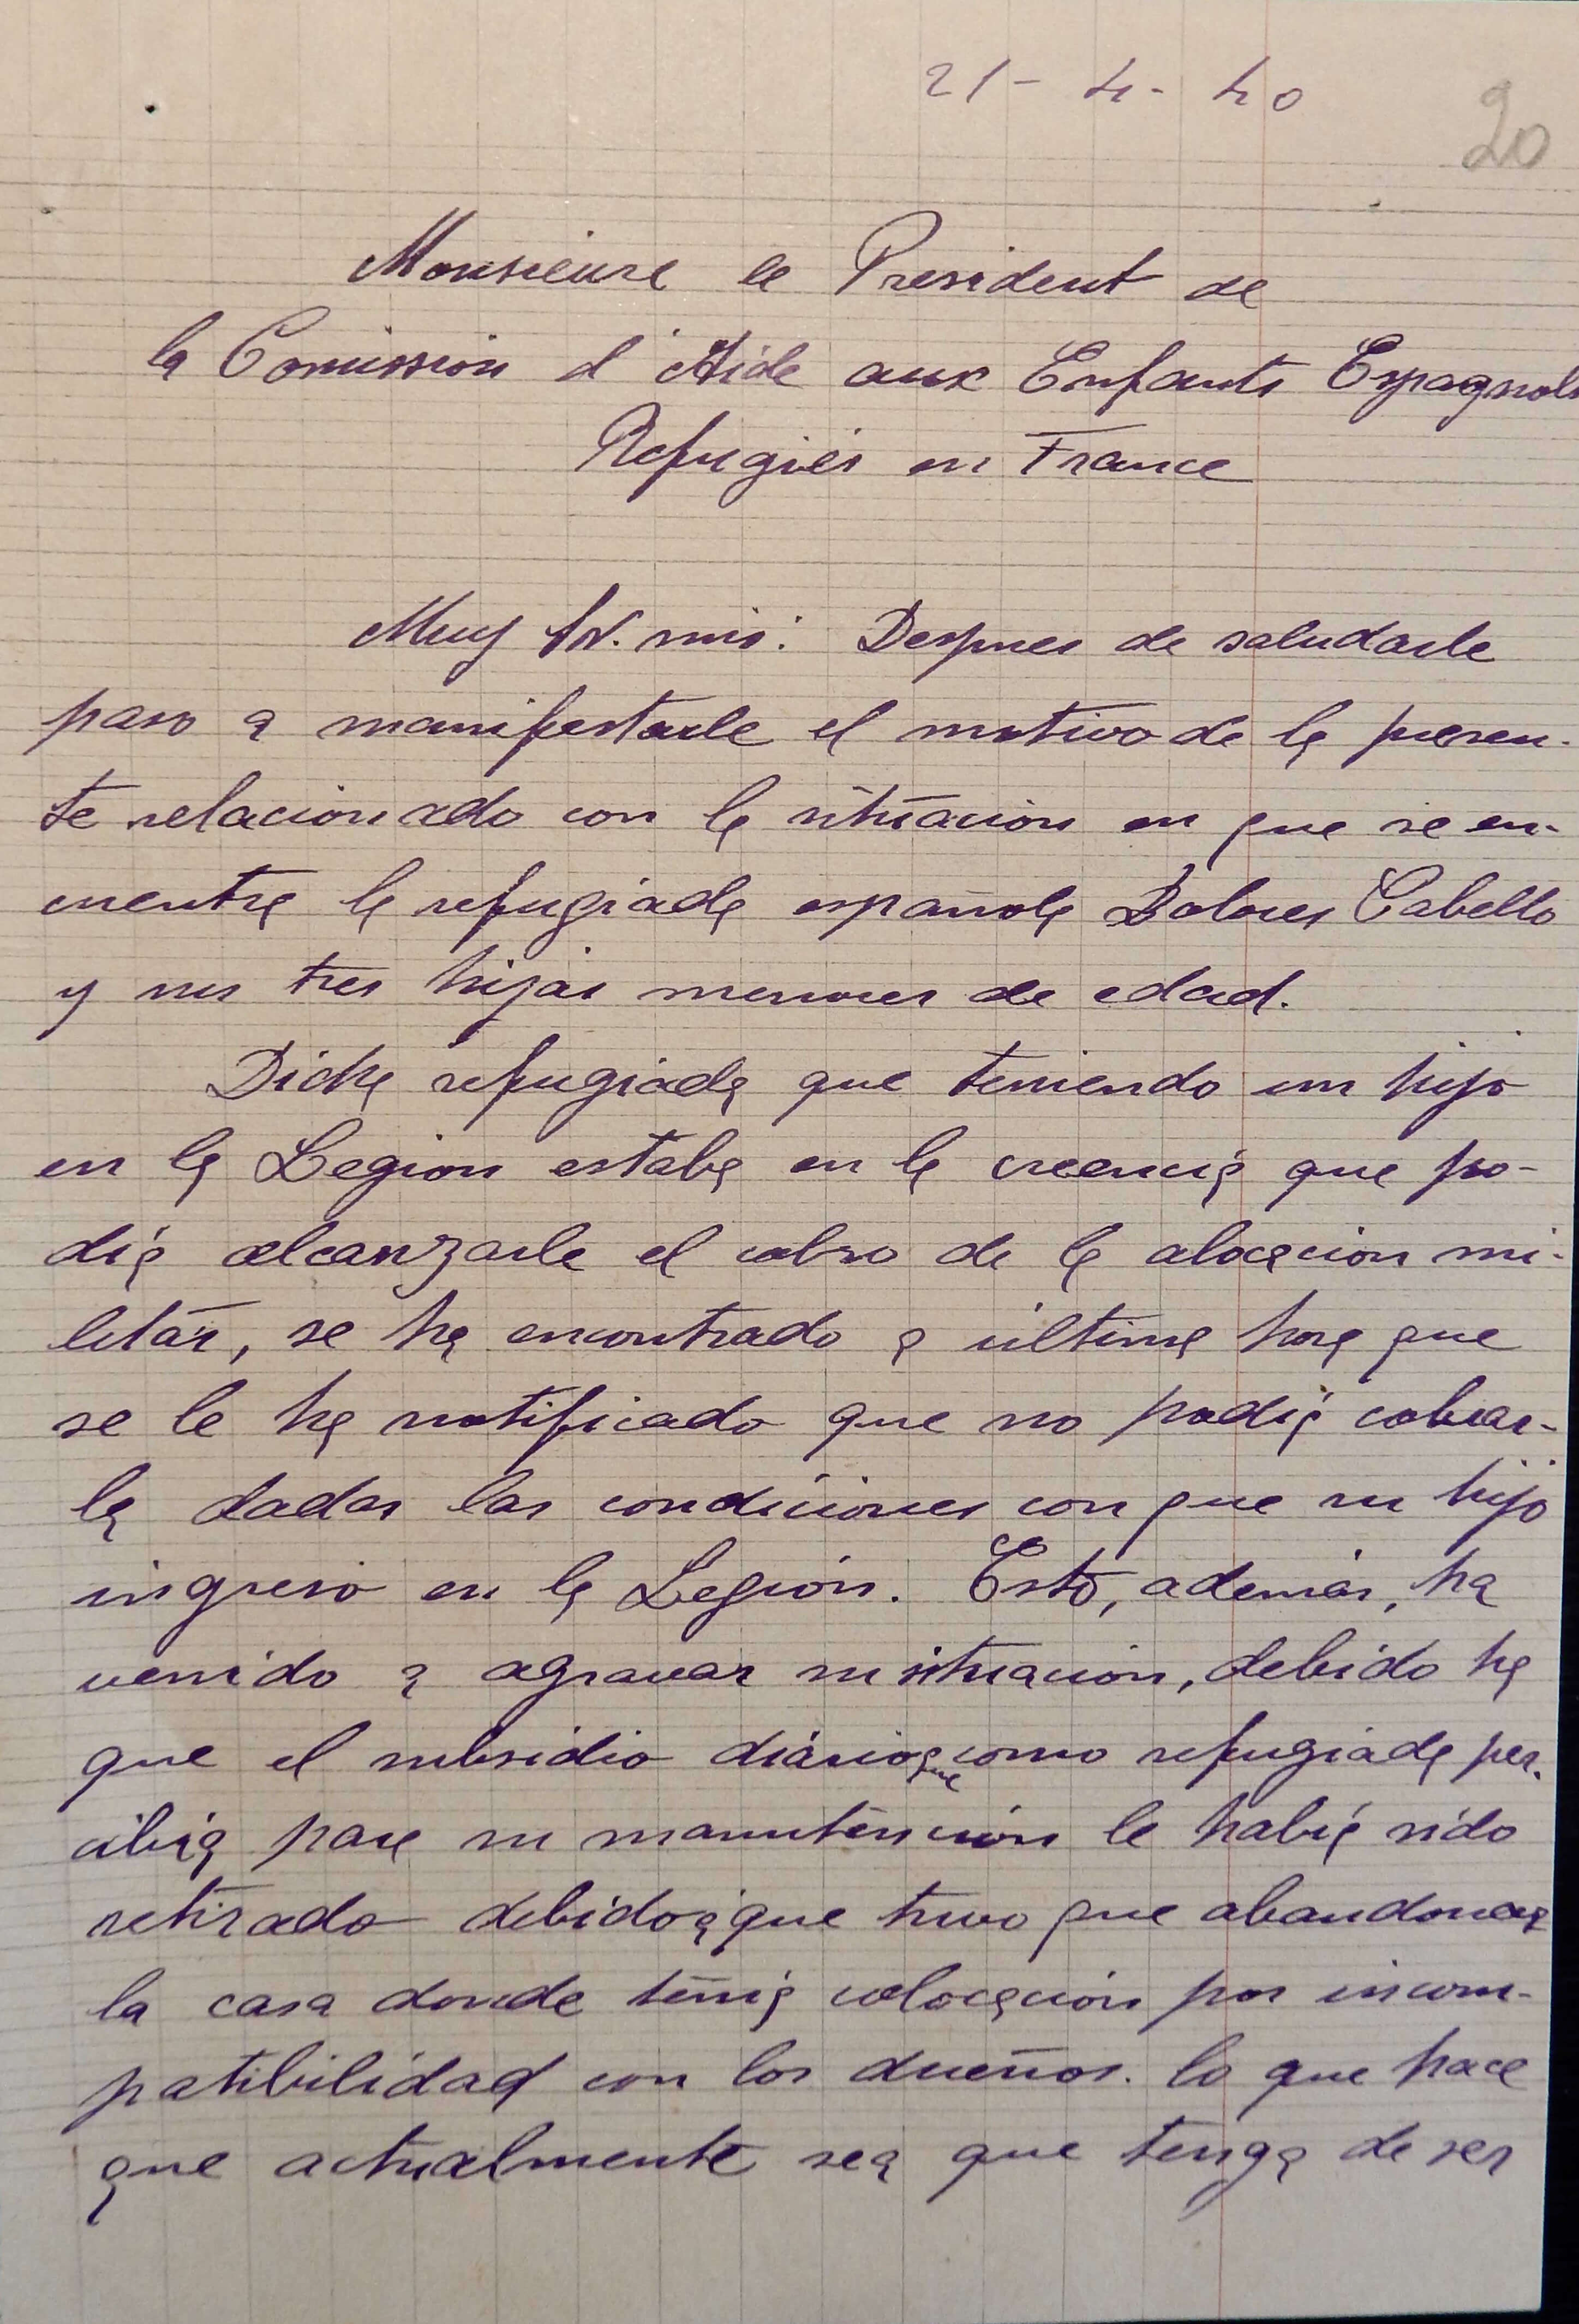 21 - 4 - 40
20
Monsieure le President de
la Comission d'Aide aux Enfants Espagnols
Refugiés en France
Muy Sr. mio: Despues de saludarle
paso a manifestarle el motivo de la presen-
te relacionado con la situación en que se en-
cuentra la refugiada española Dolores Cabello
y sus tres hijas menores de edad.
Dicha refugiada que teniendo un hijo
en la Legion estaba en la creencia que po-
día alcanzarle el cobro de la alocacion mi-
litar, se ha encontrado a última hora que
se le ha notificado que no podía cobrar-
la dadas las condiciones con que su hijo
ingreso en la Legión. Esto, además, ha
venido a agravar su situación, debido ha
que el subsidio diario que como refugiada per-
cibia para su manutención le había sido
retirado debido a que tuvo que abandonar
la casa donde tenía colocación por incom-
patibilidad con los dueños. lo que hace
que actualmente sea que tenga de ser